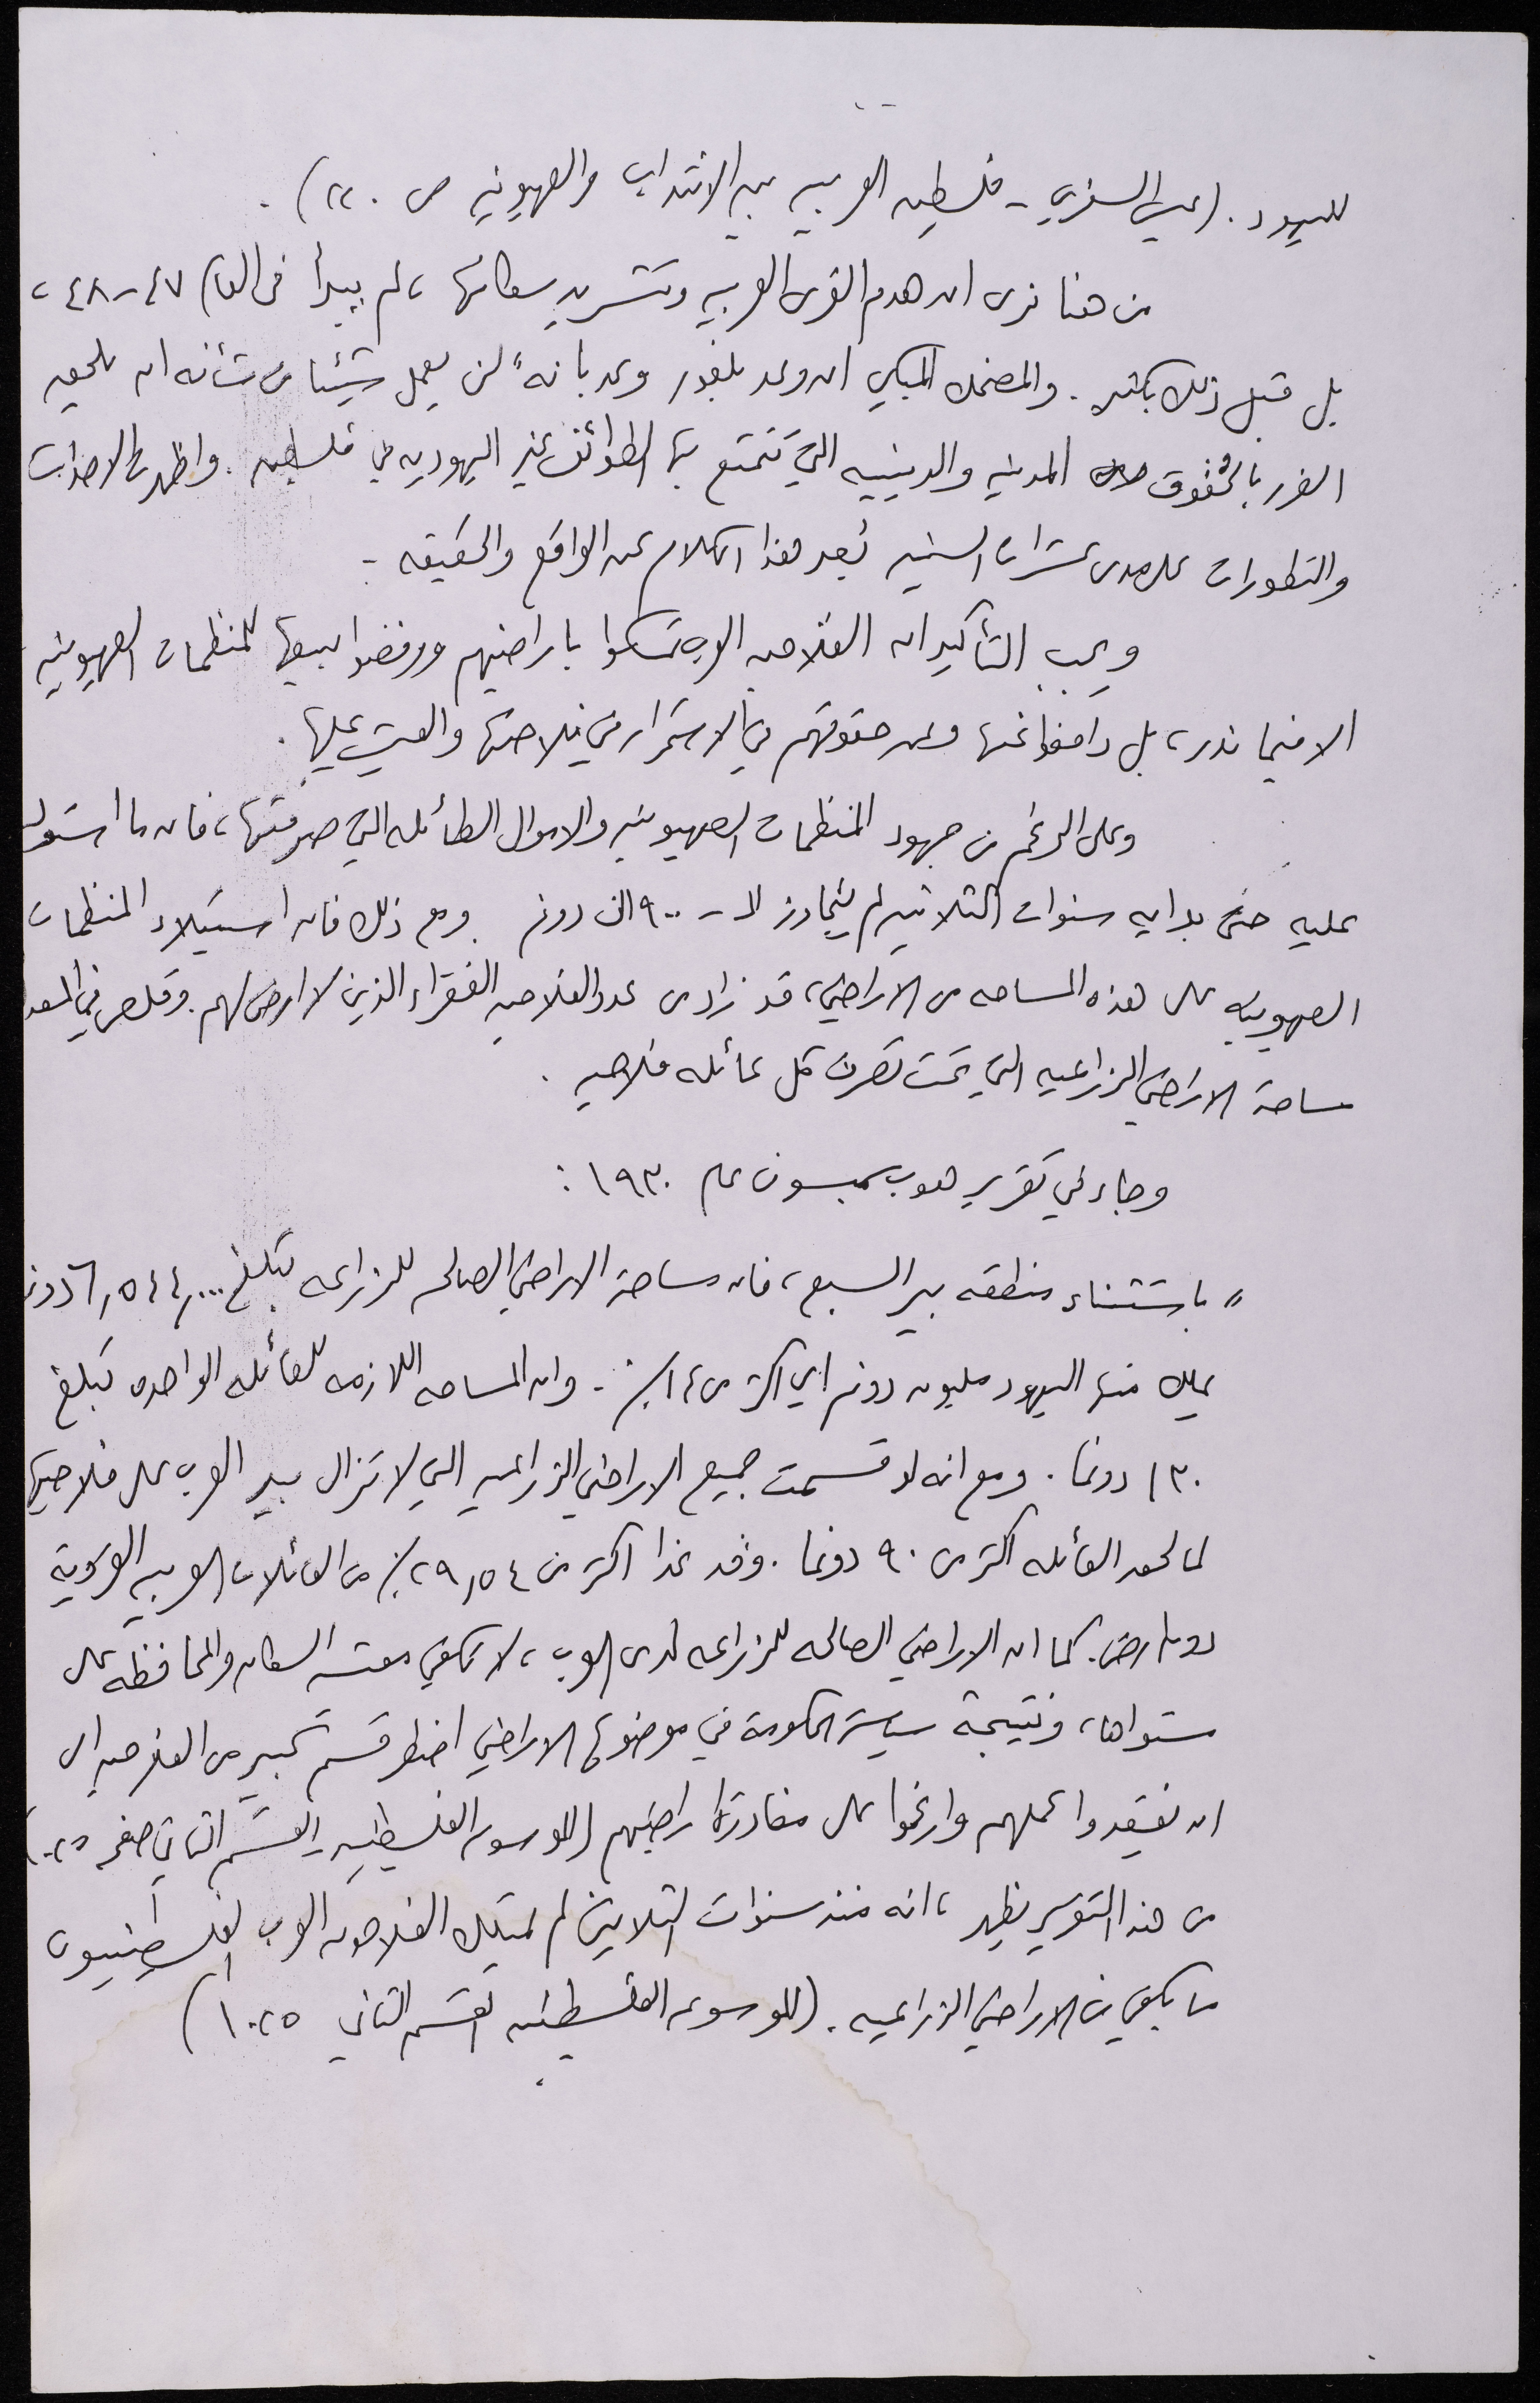 لليهود. (عيسى السفري - فلسطين العربيه بين الانتداب والصهيونيه ص ٢٢٠).
من هنا نرى ان هدم القرى العربيه وتشريد سكانها، لم يبدأ في العام ٤٧-٤٨،
بل قبل ذلك بكثير. والمضحك المبكي ان وعد بلفور وعد بانه "لن يعمل شيئا من شأنه ان يلحق
الضرر بالحقوق المدنيه والدينيه التي تتمتع بها الطوائف غير اليهوديه في فلسطين. واظهرت الاحداث
والتطورات على مدى عشرات السنين بُعد هذا الكلام عن الواقع والحقيقه -
ويجب التأكيد ان الفلاحين العرب تمسكوا باراضيهم ورفضوا بيعها للمنظمات الصهيونيه
الا فيما ندر، بل دافعوا عنها وعن حقوقهم في الاستمرار في فلاحتها والعيش عليها.
وعلى الرغم من جهود المنظمات الصهيونيه والاموال الطائله التي صرفتها، فان ما استولت
عليه حتى بدايه سنوات الثلاثين لم يتجاوز الـ - ٩٠٠ الف دونم. ومع ذلك فان استيلاء المنظمات
الصهيونيه على هذه المساحه من الاراضي، قد زاد من عدد الفلاحين الفقراء الذين لا ارض لهم. وقلص في المعدل
مساحة الاراضي الزراعيه التي تحت تصرف كل عائله فلاحيه.
وجاء في تقرير هوب سمبسون عام ١٩٣٠:
"باستثناء منطقه بير السبع، فان مساحة الاراضي الصالحه للزراعه تبلغ ٦,٥٤٤,٠٠٠ دونم
يملك منها اليهود مليون دونم اي اكثر من ١٤٪ - وان المساحه اللازمه للعائله الواحده تبلغ
١٣٠ دونما. ومع انه لو قسمت جميع الاراضي الزراعيه التي لا تزال بيد العرب على فلاحيها
لما لحق العائله اكثر من ٩٠ دونما. وقد غدا اكثر من ٢٩,٥٤٪ من العائلات العربيه القروية
دون ارض. كما ان الاراضي الصالحه للزراعه لدى العرب، لا تكفي معيشه السكان والمحافظه على
مستواها، ونتيجة سياسة الحكومة في موضوع الاراضي اضطر قسم كبير من الفلاحين الى
ان يفقدوا عملهم وارغموا على مغادرة اراضيهم (الموسوعه الفلسطينيه القسم الثاني صفحه ١٠٢٥)
من هذا التقرير يظهر، انه منذ سنوات الثلاثين لم يمتلك الفلاحون العرب الفلسطينيون
ما يكفي من الاراضي الزراعيه. (الموسوعه الفلسطينيه القسم الثاني ١٠٢٥)